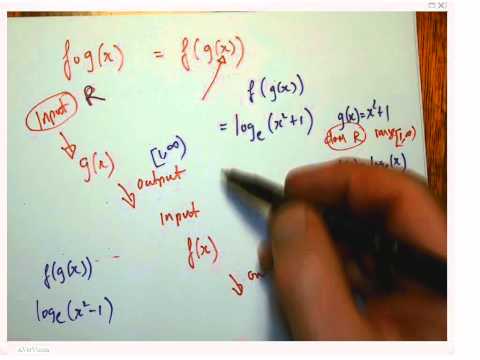 fog(x) = f(g(x))
Input R
g(x)
[1,∞)
output
input
f(x)
f(g(x))
= logₑ(x²+1)
g(x)=x²+1
dom R range [1,∞)
logₑ(x)
f(g(x))
logₑ(x²-1)